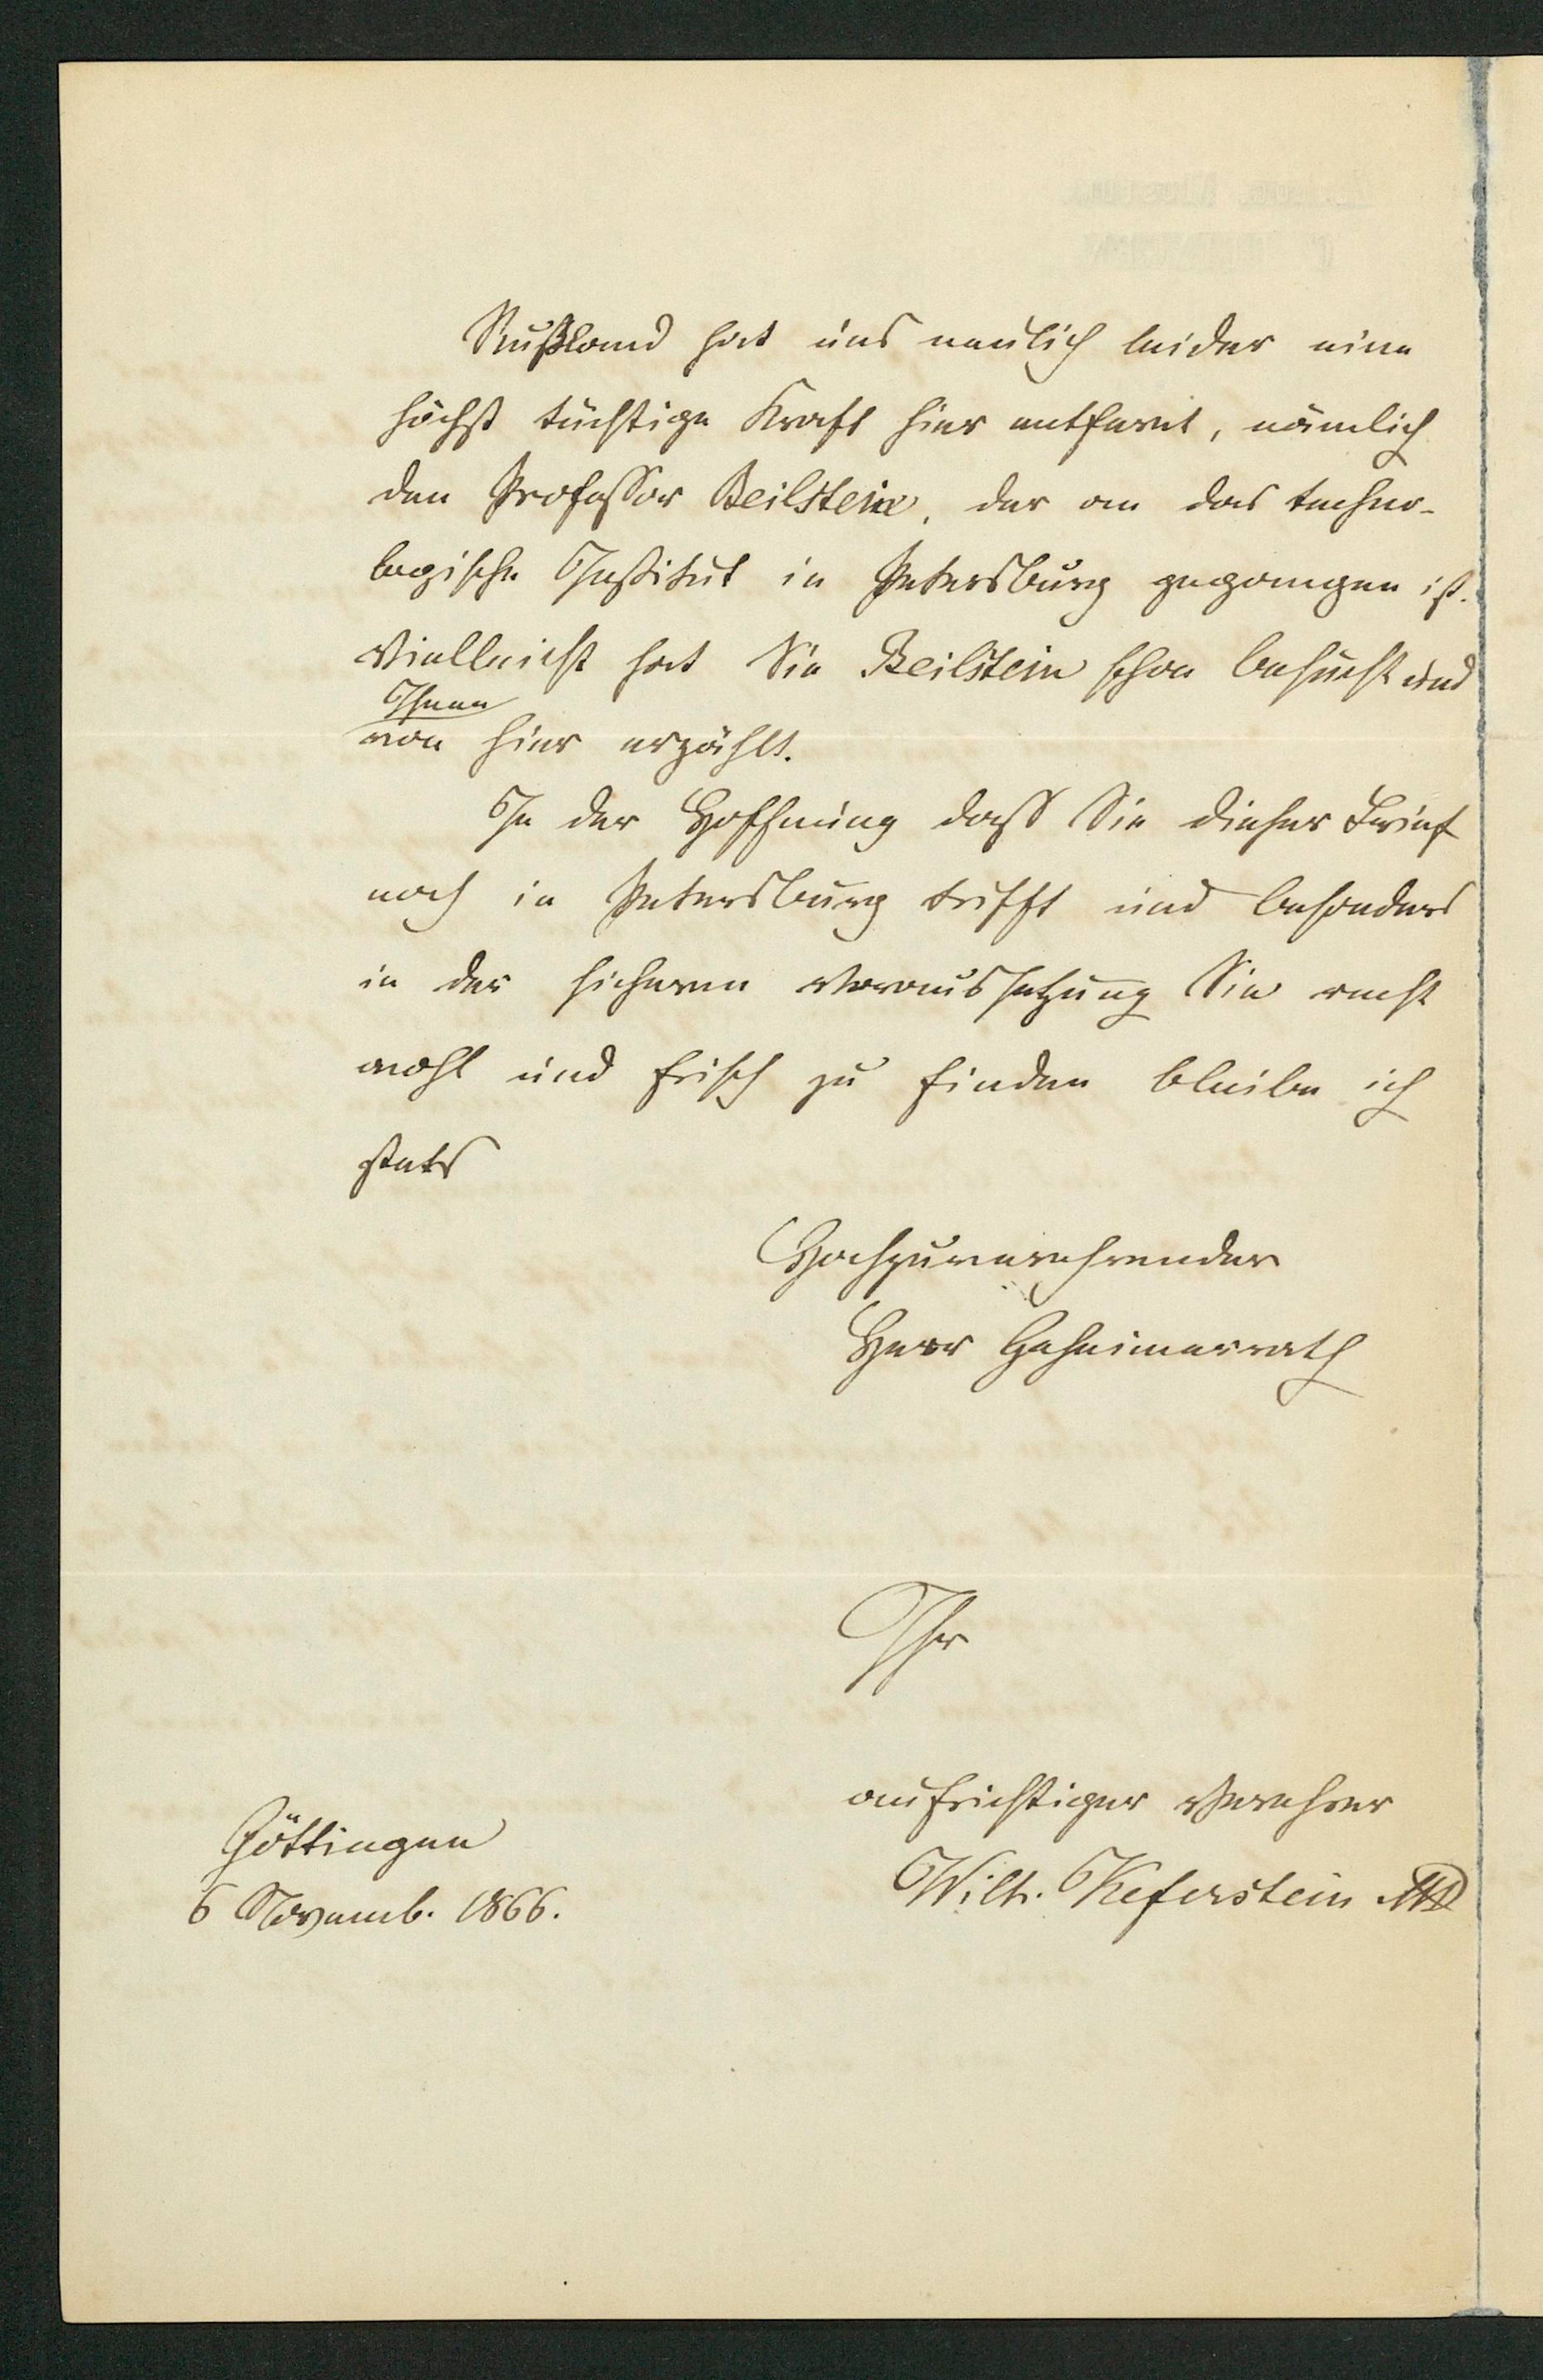 Rußland hat uns neulich leider eine
höchst tüchtige Kraft hier entfernt, nämlich
den Professor Beilstein, der an das techno-
logische Institut in Petersburg gegangen ist.
Vielleicht hat Sie Beilstein schon besucht und
Ihnen
von hier erzählt.
In der Hoffnung dass Sie dieser Brief
noch in Petersburg trifft und besonders
in der sicheren Voraussetzung Sie recht
wohl und frisch zu finden bleibe ich
stets
Hochzuverehrender
Herr Geheimerrath
Ihr
aufrichtiger Verehrer
Wilh. Keferstein MD
Göttingen
6 Novemb. 1866.